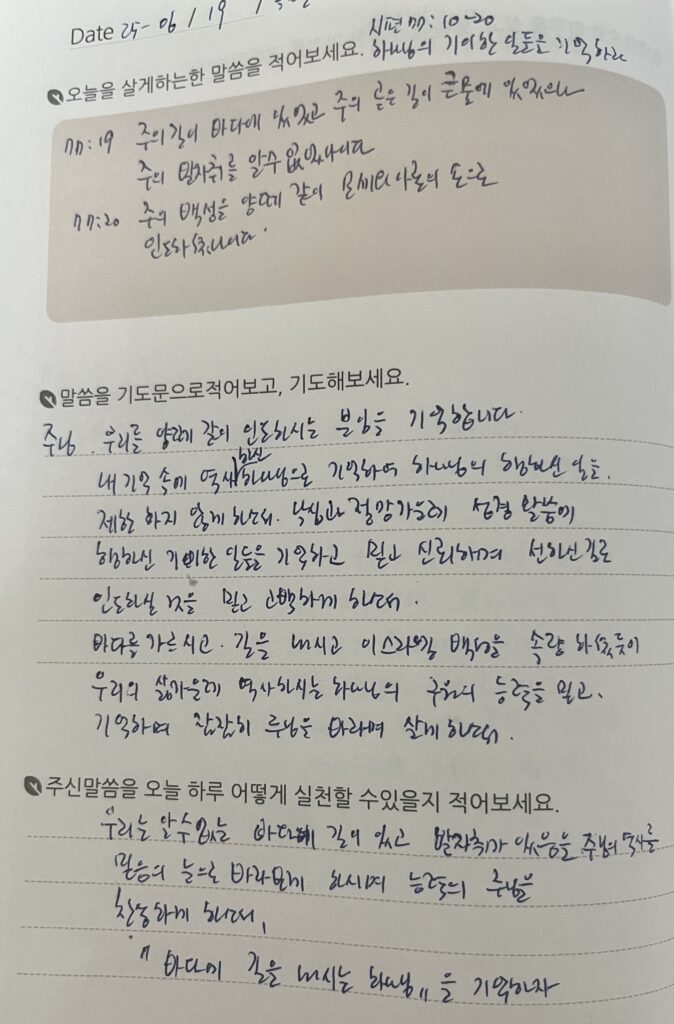 Date 25-06 / 19 /
시편 77: 10-20
오늘을 살게하는한 말씀을 적어보세요. 하나님의 기이한 일들을 기억하라
77:19 주의 길이 바다에 있었고 주의 곧은 길이 큰물에 있었으나
주의 발자취를 알수 없었나이다
77:20 주의 백성을 양떼 같이 모세와 아론의 손으로
인도하셨나이다.
말씀을 기도문으로적어보고, 기도해보세요.
주님. 우리를 양떼 같이 인도하시는 분임을 기억합니다.
내 기억 속에 역사하신 하나님으로 기억하여 하나님의 행하신 일들,
제한 하지 않게 하소서. 낙심과 절망가운데 성경 말씀에
행하신 기이한 일들을 기억하고 믿고 신뢰하며 선하신길로
인도하실 것을 믿고 고백하게 하소서.
바다를 가르시고. 길을 내시고 이스라엘 백성을 속량 하셨듯이
우리의 삶가운데 역사하시는 하나님의 구원의 능력을 믿고.
기억하며 잠잠히 주님을 바라며 살게 하소서.
주신말씀을 오늘 하루 어떻게 실천할 수있을지 적어보세요.
우리는 알수없는 바다에 길이 있고 발자취가 있음을 주님의 역사를
믿음의 눈으로 바라보게 하시며 능력의 주님을
찬송하게 하소서,
"바다에 길을 내시는 하나님"을 기억하자